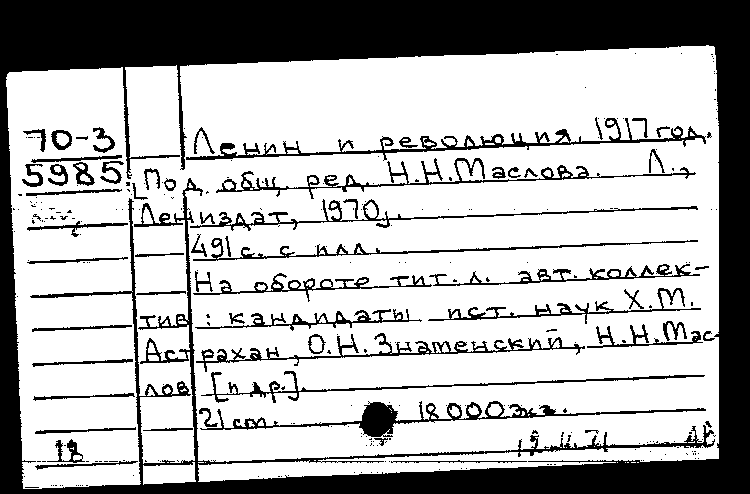 70-3
5985
Ленин и революция. 1917 год.
[Под общ. ред. Н.Н.Маслова. Л.,
Лениздат, 1970].
491 с. с илл.
На обороте тит. л. авт. коллек-
тив: кандидаты ист. наук Х.М.
Астрахан, О.Н.Знаменский, Н.Н.Мас-
лов [и др.].
21 см. 18000 экз.
18